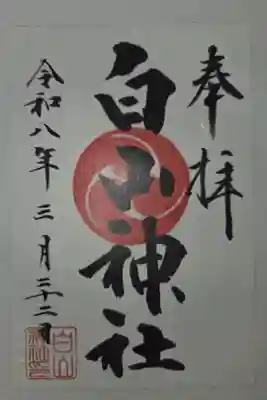 奉拝
白山神社
令和八年三月二十二日
白山神社印